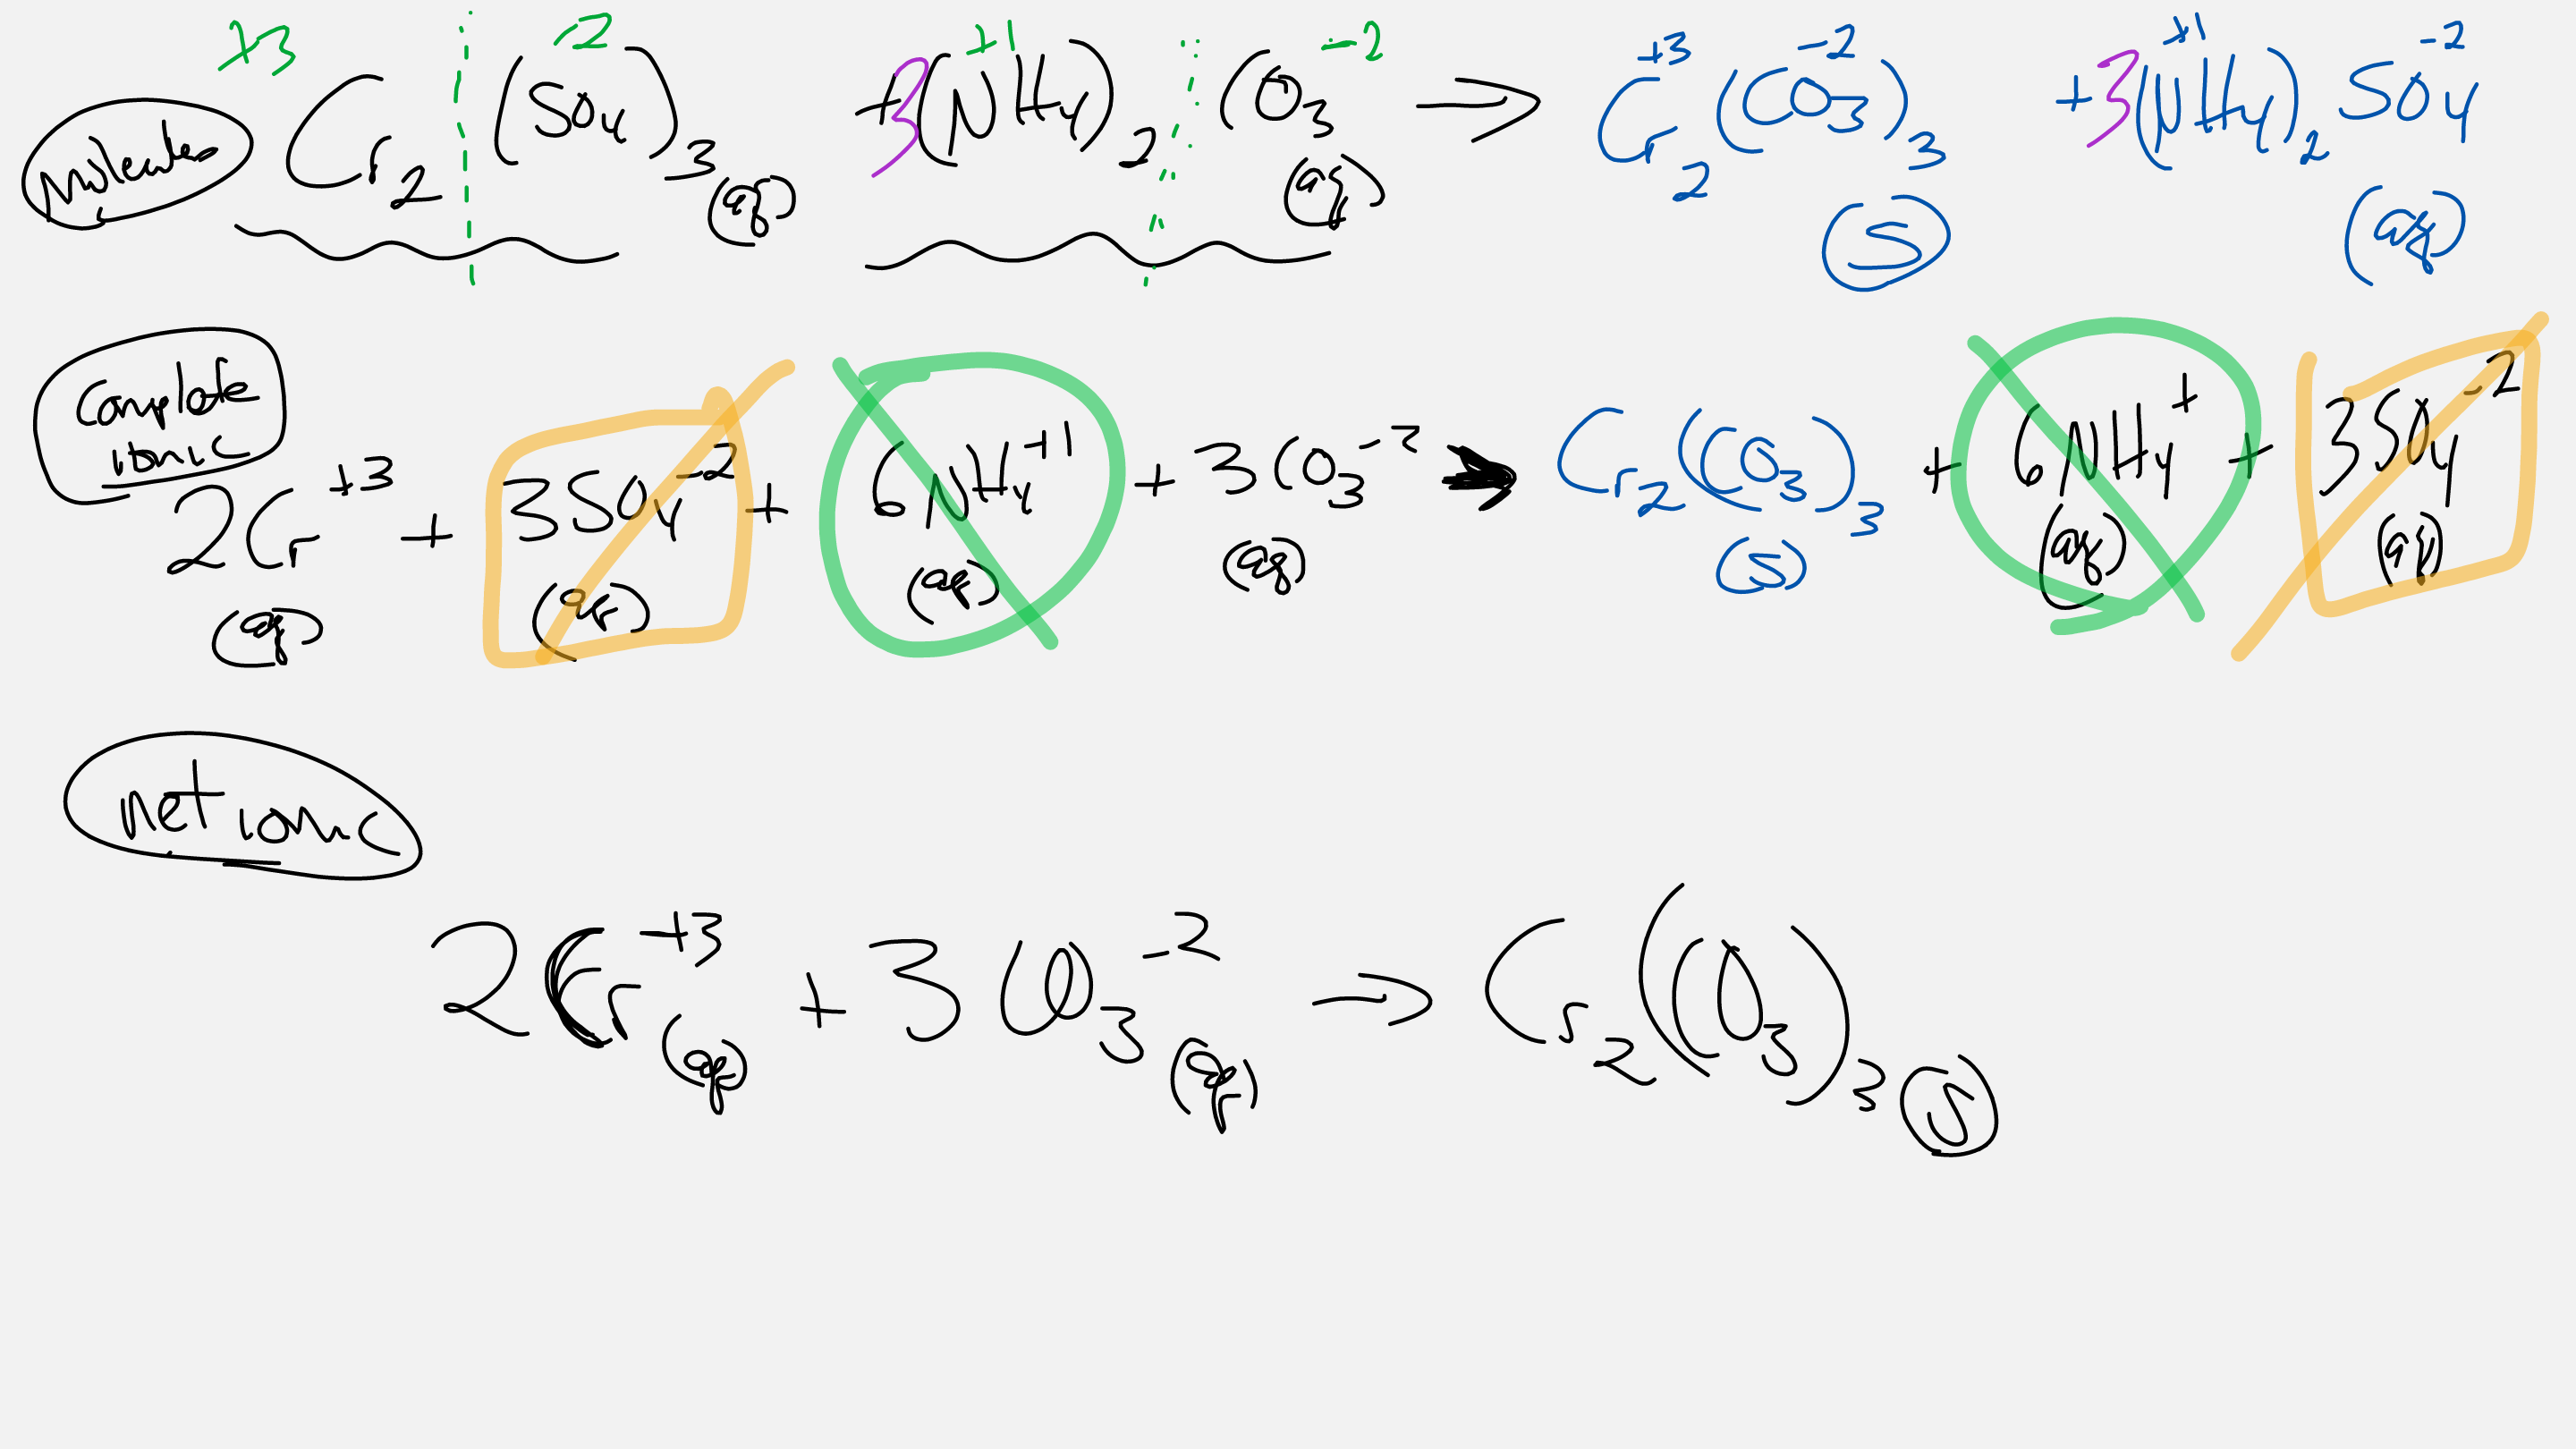 +3 -2 +1 -2 +3 -2 +1 -2
Molecular Cr₂(SO₄)₃(aq) + 3(NH₄)₂CO₃(aq) → Cr₂(CO₃)₃(s) + 3(NH₄)₂SO₄(aq)
Complete
ionic
2Cr⁺³(aq) + 3SO₄⁻²(aq) + 6NH₄⁺¹(aq) + 3CO₃⁻²(aq) → Cr₂(CO₃)₃(s) + 6NH₄⁺(aq) + 3SO₄⁻²(aq)
net ionic
2Cr⁺³(aq) + 3CO₃⁻²(aq) → Cr₂(CO₃)₃(s)